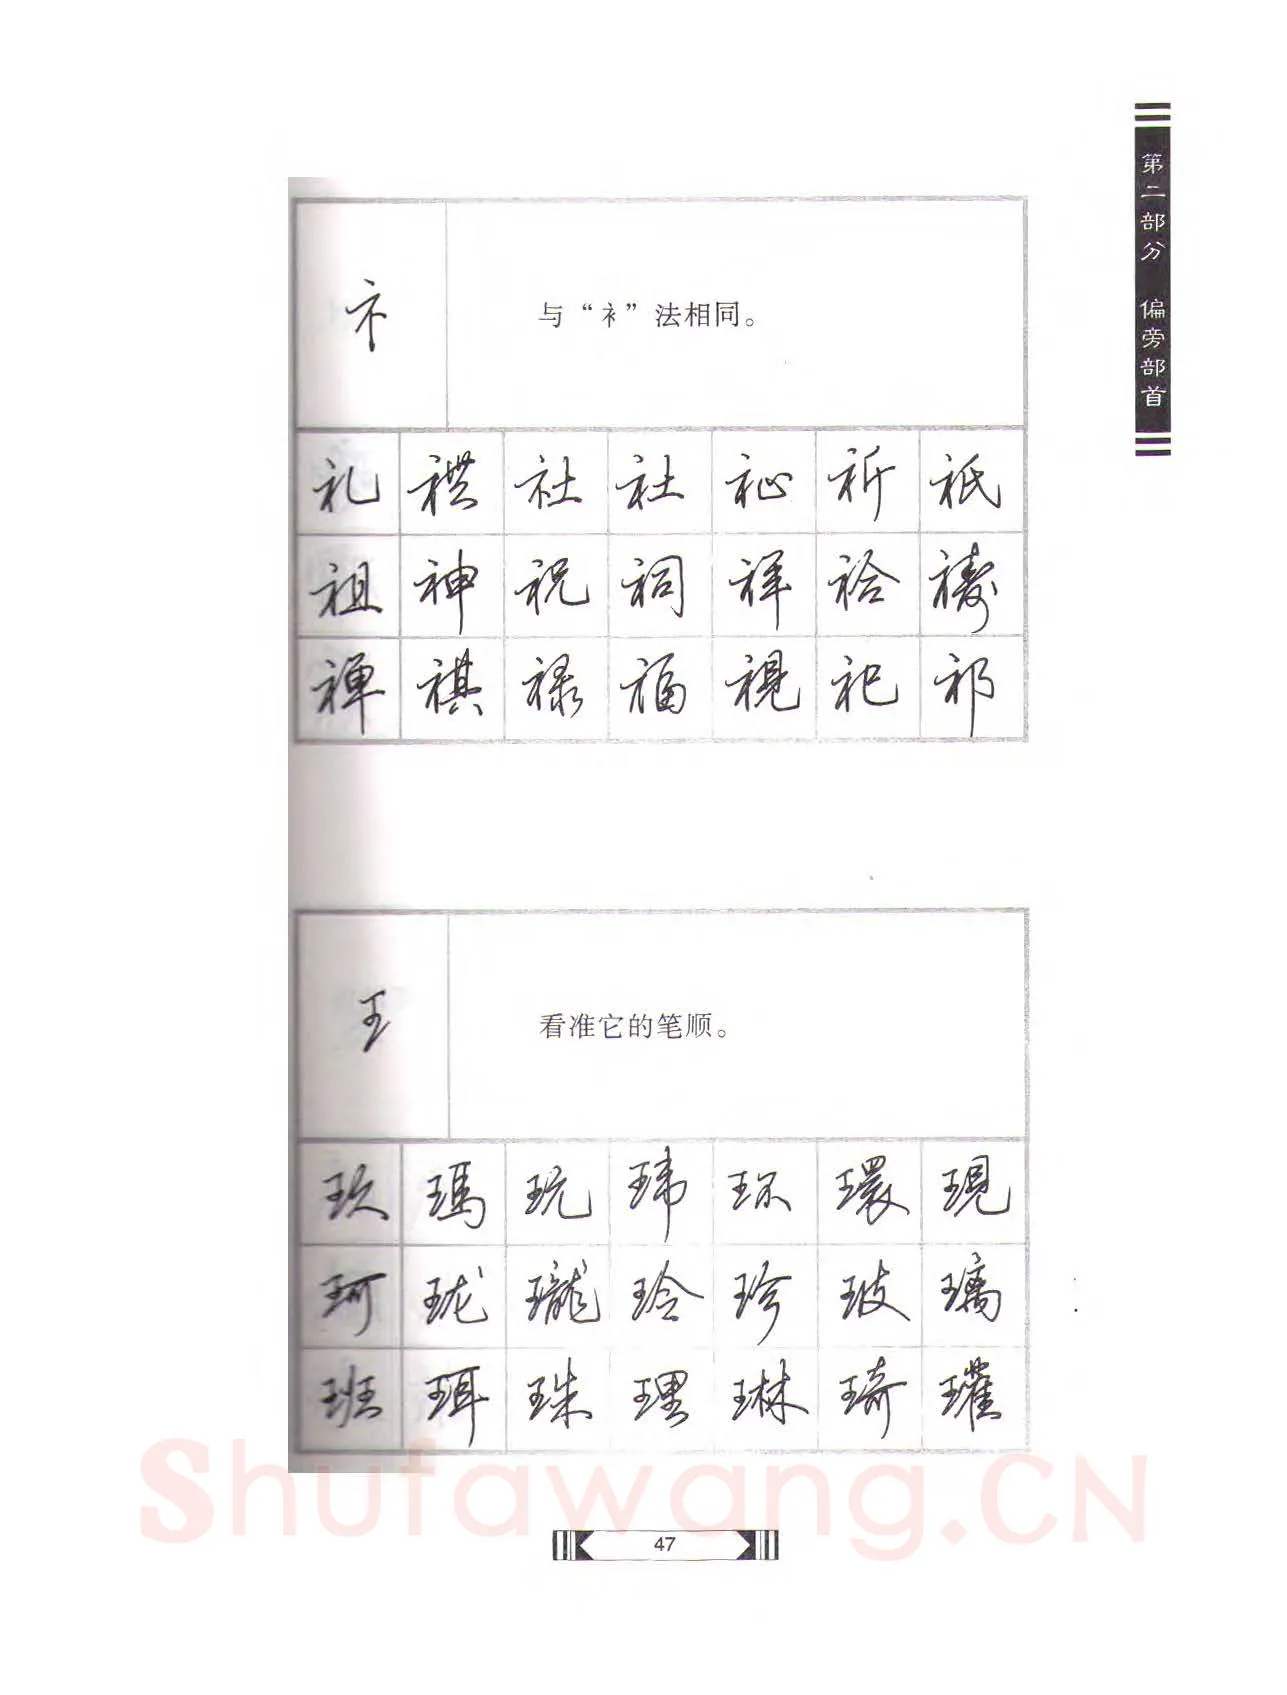 第二部分 偏旁部首
礻
与“衤”法相同。
礼 禊 社 社 祉 祈 祇
祖 神 祝 祠 祥 祫 祷
禅 祺 禄 福 视 祀 祁
王
看准它的笔顺。
玖 瑪 玩 玮 环 環 現
珂 珑 瓏 玲 珍 玻 璃
班 珥 珠 理 琳 琦 瓘
Shufawang.CN
47